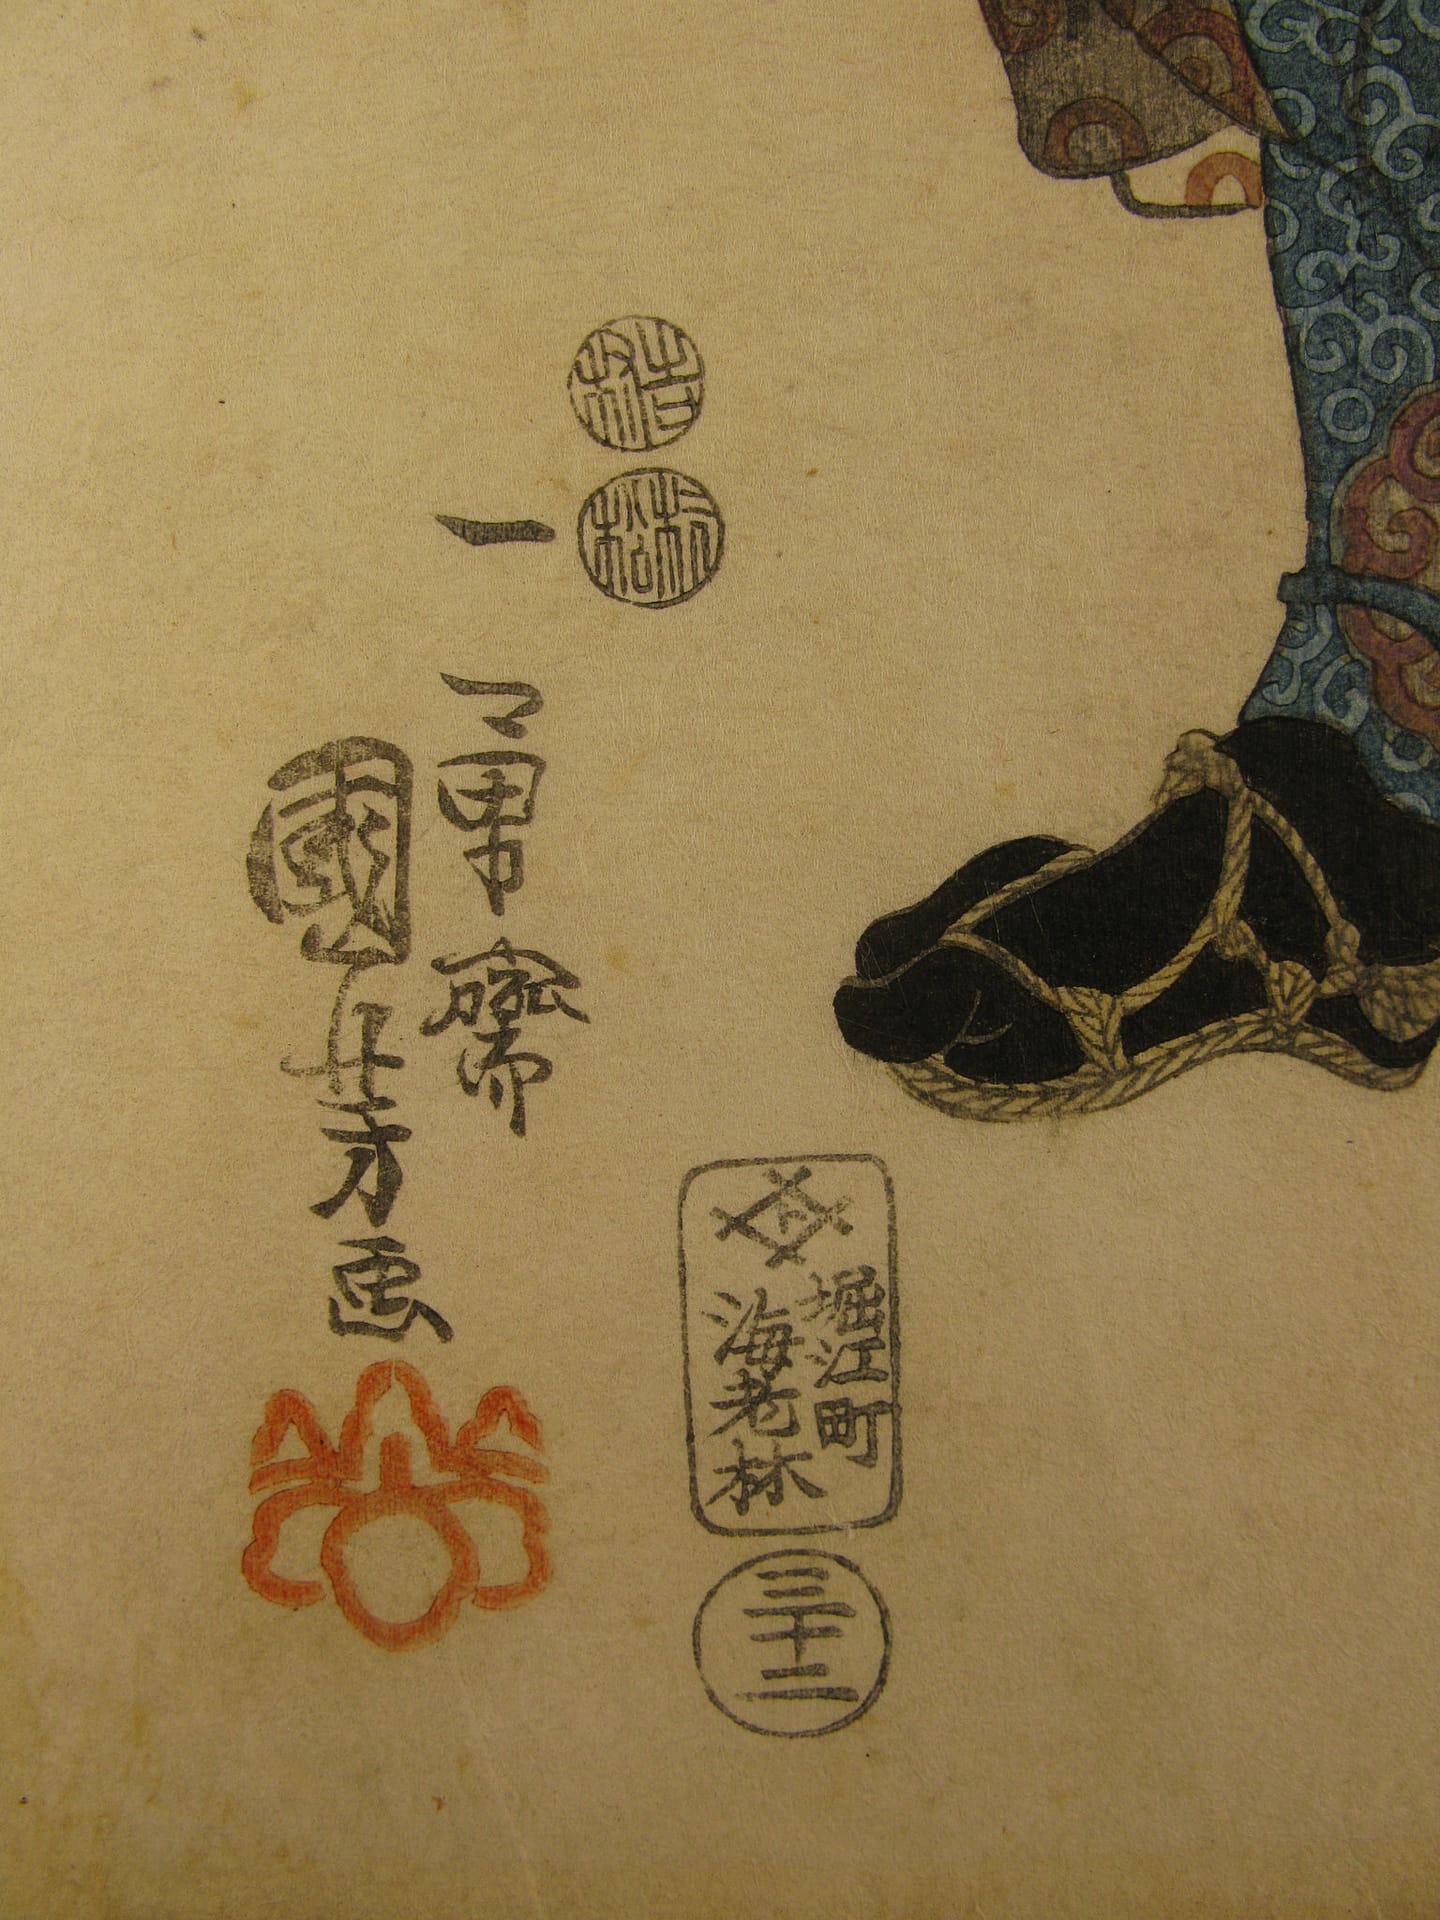 吉村
村松
一勇齋
國芳画
堀江町
海老林
三十二